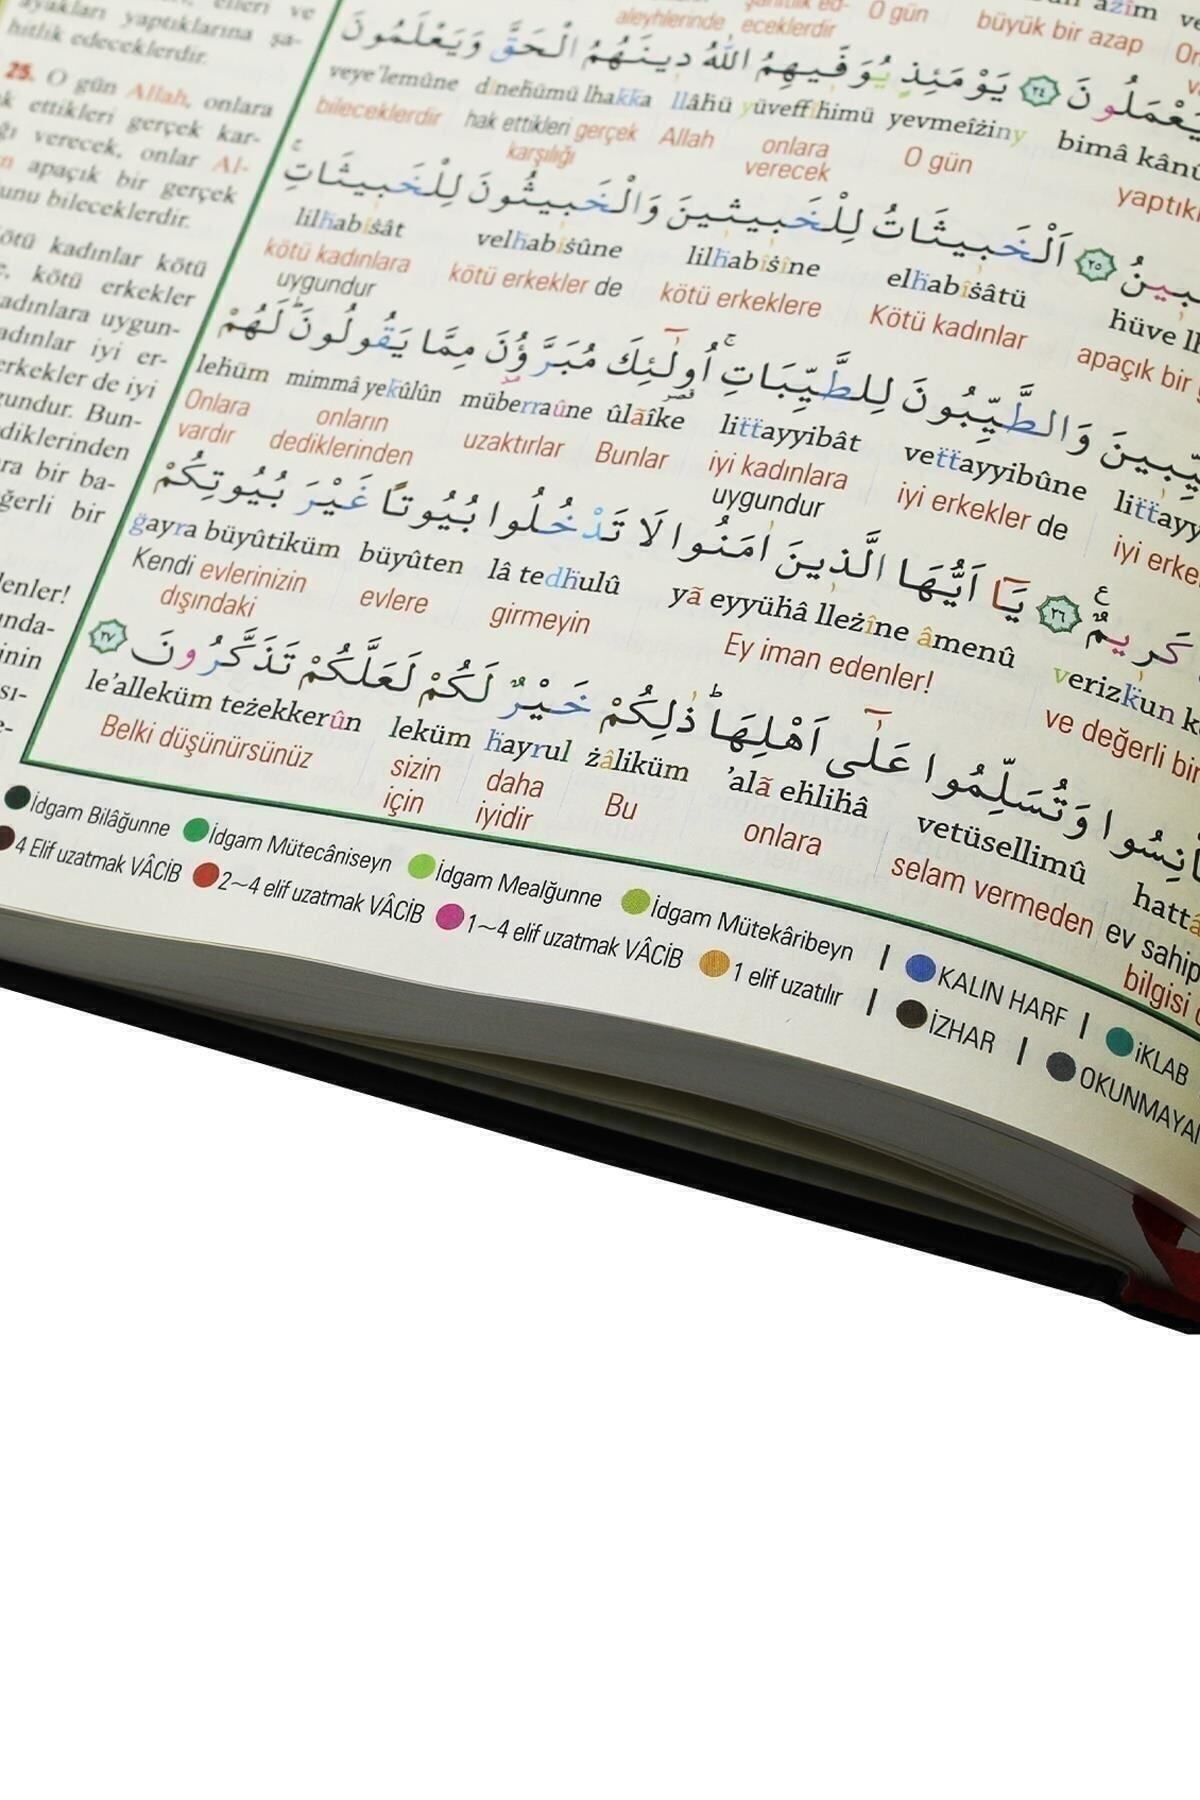 ayakları yaptıklarına şa-
hitlik edeceklerdir.
25. O gün Allah, onlara
ettikleri gerçek kar-
verecek, onlar Al-
apaçık bir gerçek
bileceklerdir.
kadınlar kötü
kötü erkekler
uygun-
iyi er-
erkekler de iyi
Bun-
dediklerinden
bir ba-
bir
aleyhlerinde eceklerdir O gün büyük bir azap
يَعْمَلُونَ ﴿٢٤﴾ يَوْمَئِذٍ يُوَفِّيهِمُ اللّٰهُ دِينَهُمُ الْحَقَّ وَيَعْلَمُونَ
veye'lemûne dinehümü lhakka llâhü yüveffihimü yevmeîziny bimâ
bileceklerdir hak ettikleri gerçek Allah onlara O gün
karşılığı verecek
﴿٢٥﴾ اَلْخَبِيثَاتُ لِلْخَبِيثِينَ وَالْخَبِيثُونَ لِلْخَبِيثَاتِۚ
lilhabîsât velhabîsûne lilhabîsîne elhabîsâtü hüve
kötü kadınlara kötü erkekler de kötü erkeklere Kötü kadınlar apaçık bir
uygundur
وَالطَّيِّبُونَ لِلطَّيِّبَاتِۚ اُو۬لٰٓئِكَ مُبَرَّؤُ۫نَ مِمَّا يَقُولُونَۜ لَهُمْ
lehüm mimmâ yekûlûn müberraûne ûlãîke littayyibât vettayyibûne
Onlara onların uzaktırlar Bunlar iyi kadınlara iyi erkekler de iyi
vardır dediklerinden uygundur
كَرِيمٌ۟ ﴿٢٦﴾ يَٓا اَيُّهَا الَّذِينَ اٰمَنُوا لَا تَدْخُلُوا بُيُوتًا غَيْرَ بُيُوتِكُمْ
gayra büyûtiküm büyûten lâ tedhulû yã eyyühâ llezîne âmenû verizkun
Kendi evlerinizin evlere girmeyin Ey iman edenler! ve değerli bir
dışındaki
وَتُسَلِّمُوا عَلٰٓى اَهْلِهَاۜ ذٰلِكُمْ خَيْرٌ لَكُمْ لَعَلَّكُمْ تَذَكَّرُونَ ﴿٢٧﴾
le'alleküm tezekkerûn leküm hayrul zâliküm 'alã ehlihâ vetüsellimû
Belki düşünürsünüz sizin daha Bu onlara selam vermeden ev
için iyidir bilgisi
İdgam Bilâğunne İdgam Mütecâniseyn İdgam Mealğunne İdgam Mütekâribeyn | KALIN HARF | İKLAB
4 Elif uzatmak VÂCİB 2~4 elif uzatmak VÂCİB 1~4 elif uzatmak VÂCİB 1 elif uzatılır | İZHAR |